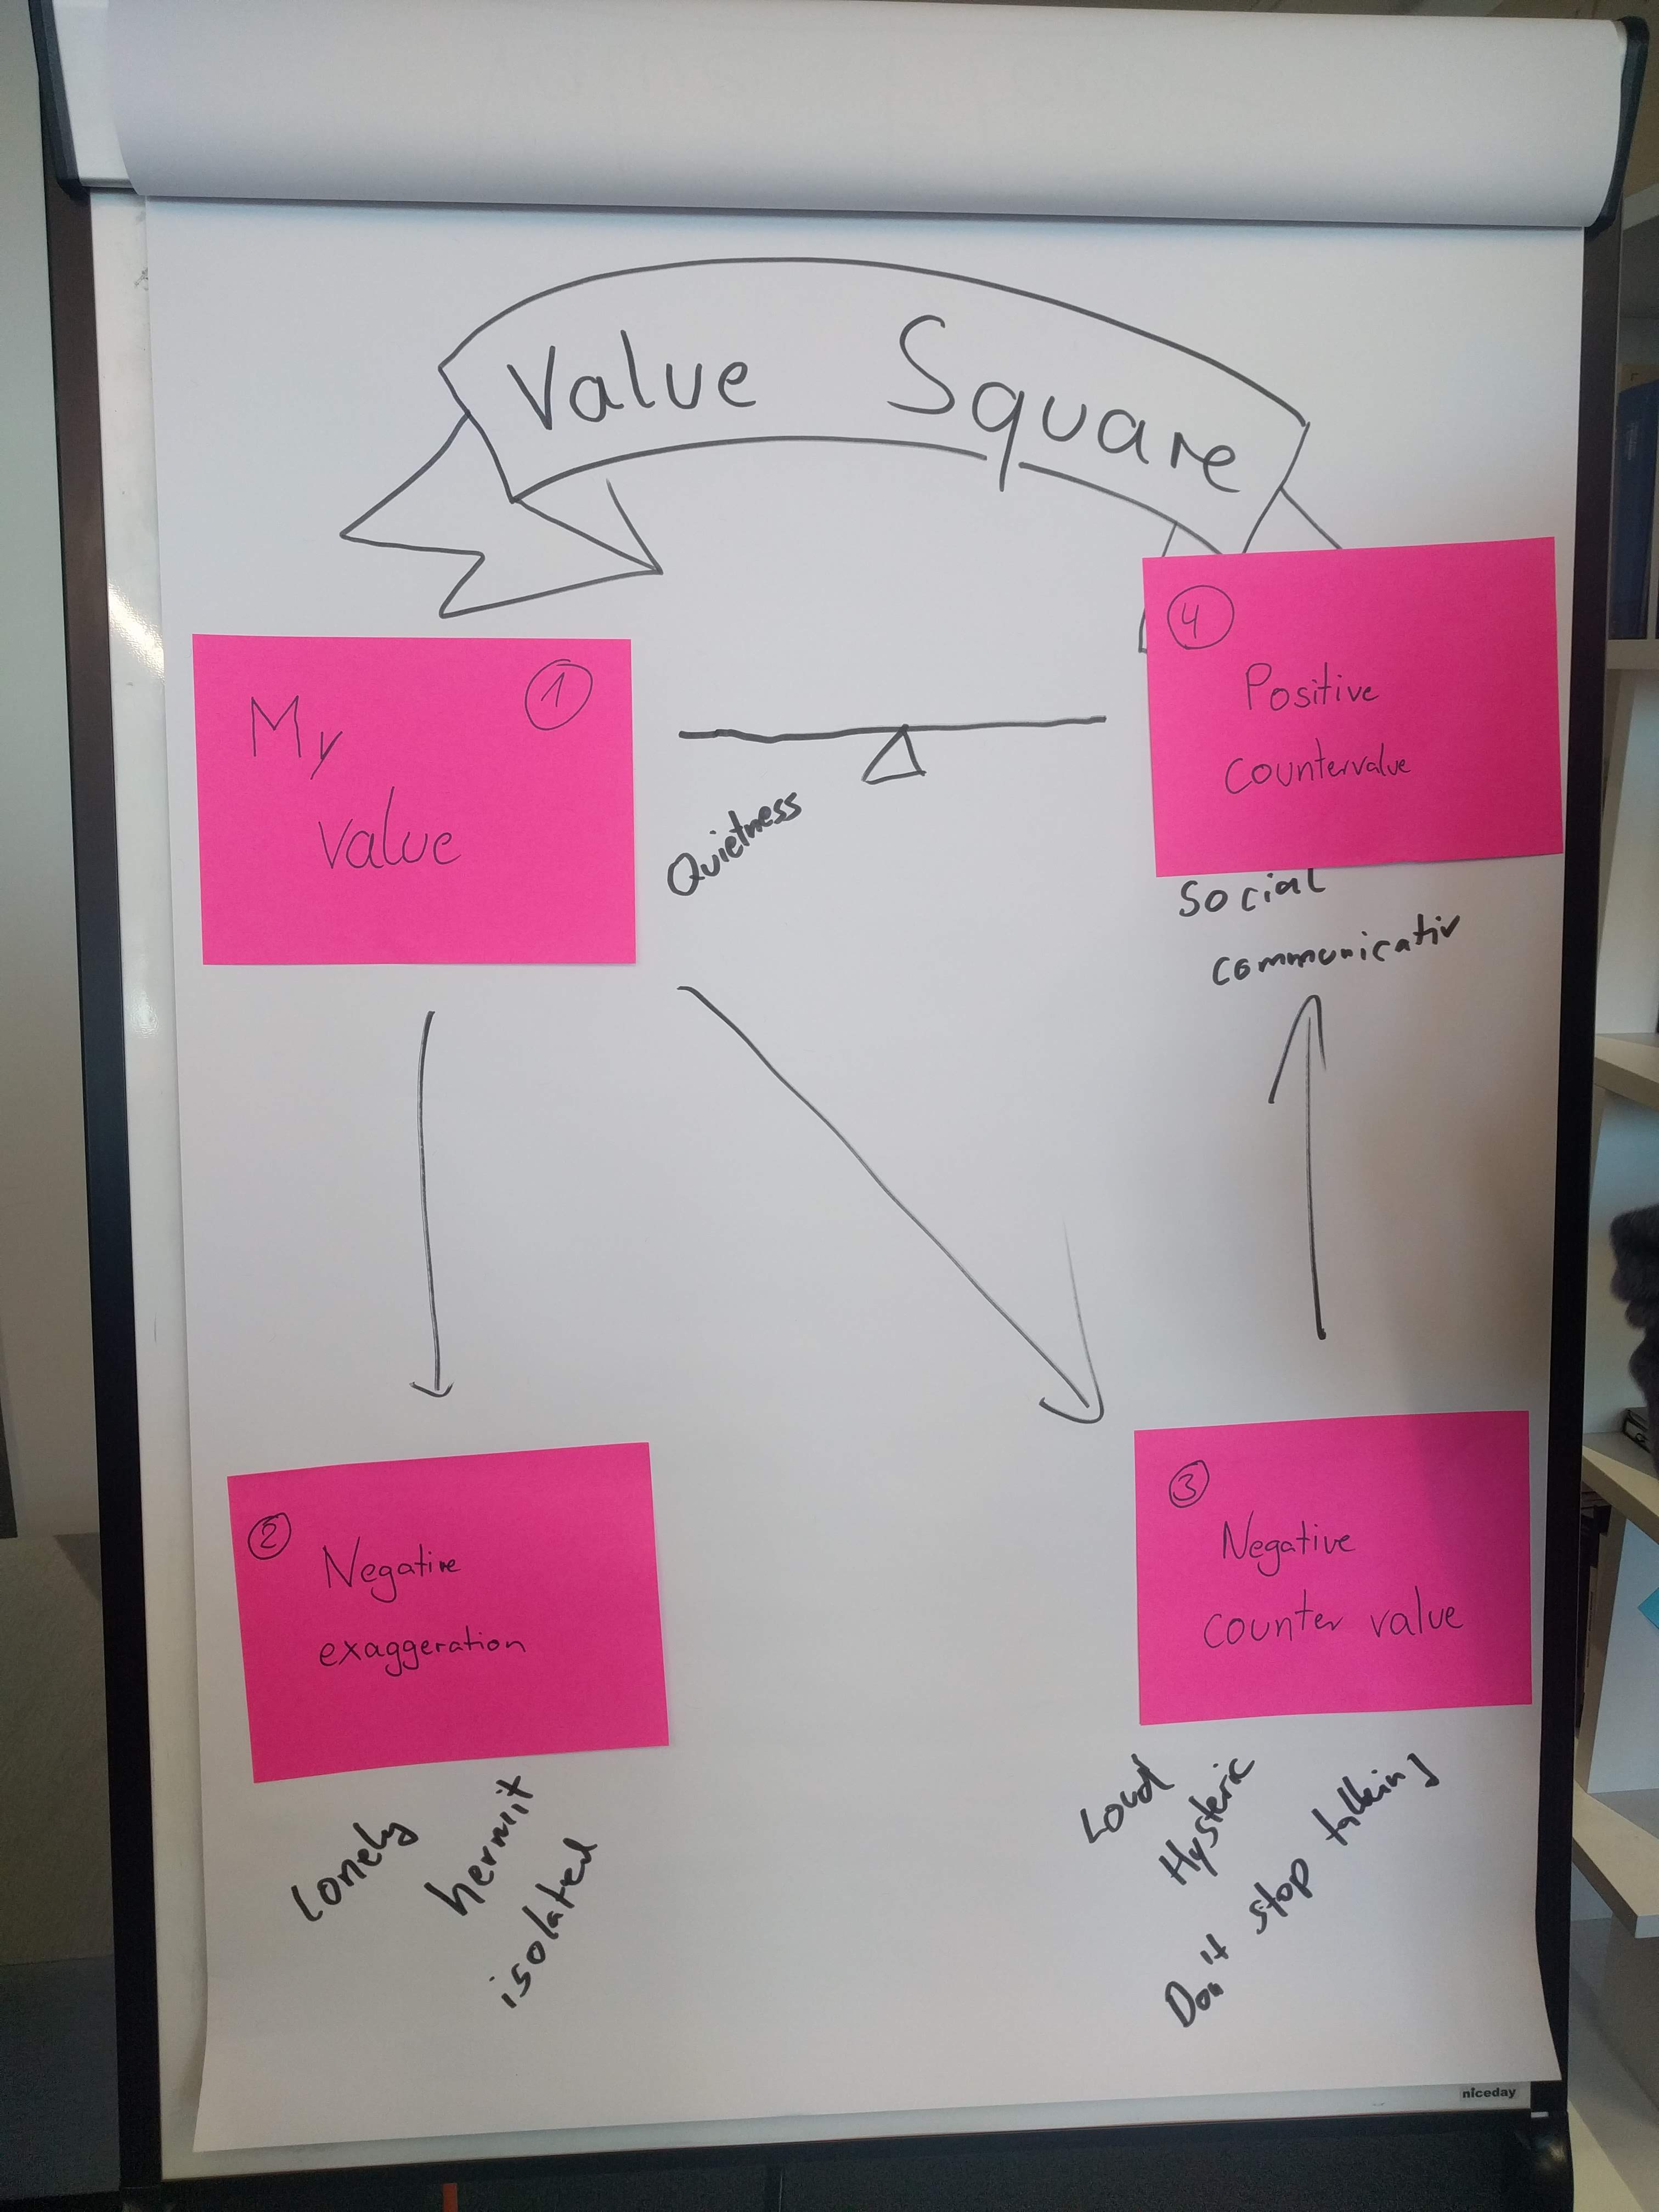 Value Square
My
value
1
Quietness
4
Positive
countervalue
social
communicativ
2
Negative
exaggeration
lonely
hermit
isolated
3
Negative
counter value
Loud
Hysteric
Don't stop talking
niceday